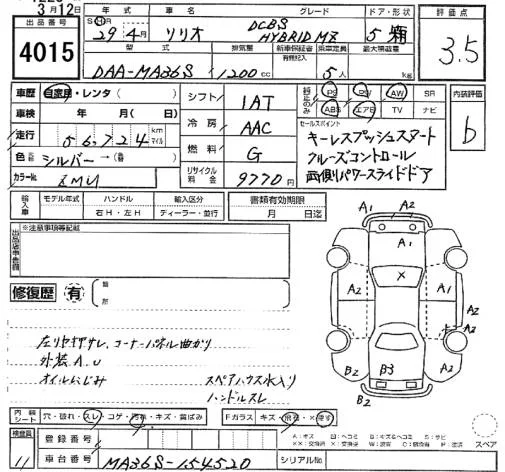 3月12日
出品番号
4015
年式 車名 グレード ドア・形状
S H 29年4月 ソリオ DCBS HYBRID MZ 5 箱
型式 排気量 新車保証書 乗車定員 最大積載量
有無記入
DAA-MA36S 1200cc 5人 kg
評価点
3.5
車歴 自家用・レンタ( )
車検 年 月( )
走行 56,724 km マイル
色 シルバー→( )
カラーNo.
シフト 1AT
冷房 AAC
燃料 G
リサイクル料金 9770円
PS PW AW SR
ABS エアB TV ナビ
セールスポイント
キーレスプッシュスタート
クルーズコントロール
両側パワースライドドア
内装評価
b
輸入車 モデル年式 ハンドル 輸入区分 書類有効期限
右H・左H ディーラー・並行 月 日迄
※注意事項等記載
修復歴 有 箇所
左リヤ押サレ、コーナーパネル曲がり
外装A.U
オイルにじみ スペアハウス水入り
ハンドルスレ
A1 A2
A1
A2
X
A2 A2
A2
A2
B2 B3 B2
B2
内装シート 穴・破れ・スレ・コゲ・汚れ・キズ・黄ばみ Fガラス キズ・飛石・X
検査員 11
登録番号
車台番号 MA36S-154520 シリアルNo.
A:キズ B:ヘコミ
スペア